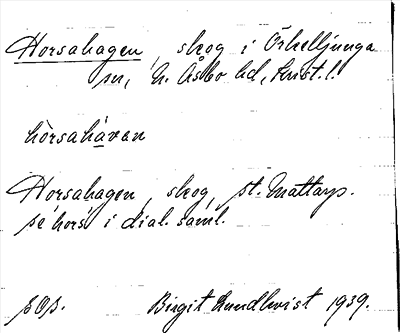 Horsahagen, skog i Örkelljunga
sn, N. Åsbo hd, Krist. l.
hòrsahàvan
Horsahagen, skog, st. Mattarp.
se hors i dial. saml.
Birgit Lundkvist 1939.